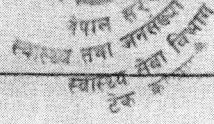 नेपाल सर
स्वास्थ्य तथा जनसंख्या
स्वास्थ्य सेवा विभाग
टेकु